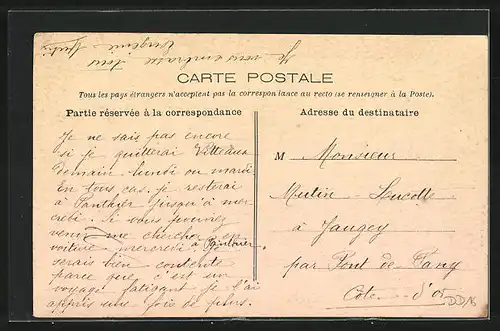 Je vous embrasse tous
Eugénie Mutin
CARTE POSTALE
Tous les pays étrangers n'acceptent pas la correspondance au recto (se renseigner à la Poste).
Partie réservée à la correspondance
Je ne sais pas encore
si je quitterai Vitteaux
demain lundi ou mardi
En tous cas je resterai
à Panthier jusqu'à mer
credi. Si vous pouvez
venir me chercher en
voiture mercredi à Panthier
serais bien contente
parce que c'est un
voyage fatigant je l'ai
appris une fois de plus.
Adresse du destinataire
M Monsieur
Mutin-Lucotte
à Jaugey
par Pont de Pany
Côte-d'Or